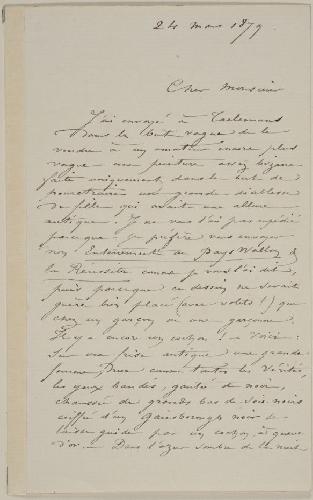 24 mars 1879
Cher Monsieur
J'ai envoyé à Taelemans
dans le but vague de le
vendre à un amateur encore plus
vague - une peinture assez bizarre
faite uniquement dans le but de
une grande diablesse
de fille qui avait une allure
antique. Je ne vous l'ai pas expédié
parceque je préfère vous envoyer
mon Enterrement au Pays Wallon &
la comme je vous l'ai dit,
puis parceque ce dessin ne saurait
guère bien placé (avec volets !) que
chez un garçon ou une garçonne.
Il y a encore un cochon ! - Voici :
Sur une frise antique une grande
femme nue comme toutes les Vérités,
les yeux bandés, gantée de noir,
chaussée de grands bas de soie noirs
coiffée d'un Gainsborough noir se
laisse guider par un cochon à queue
d'or. - Dans l'azur sombre de la nuit